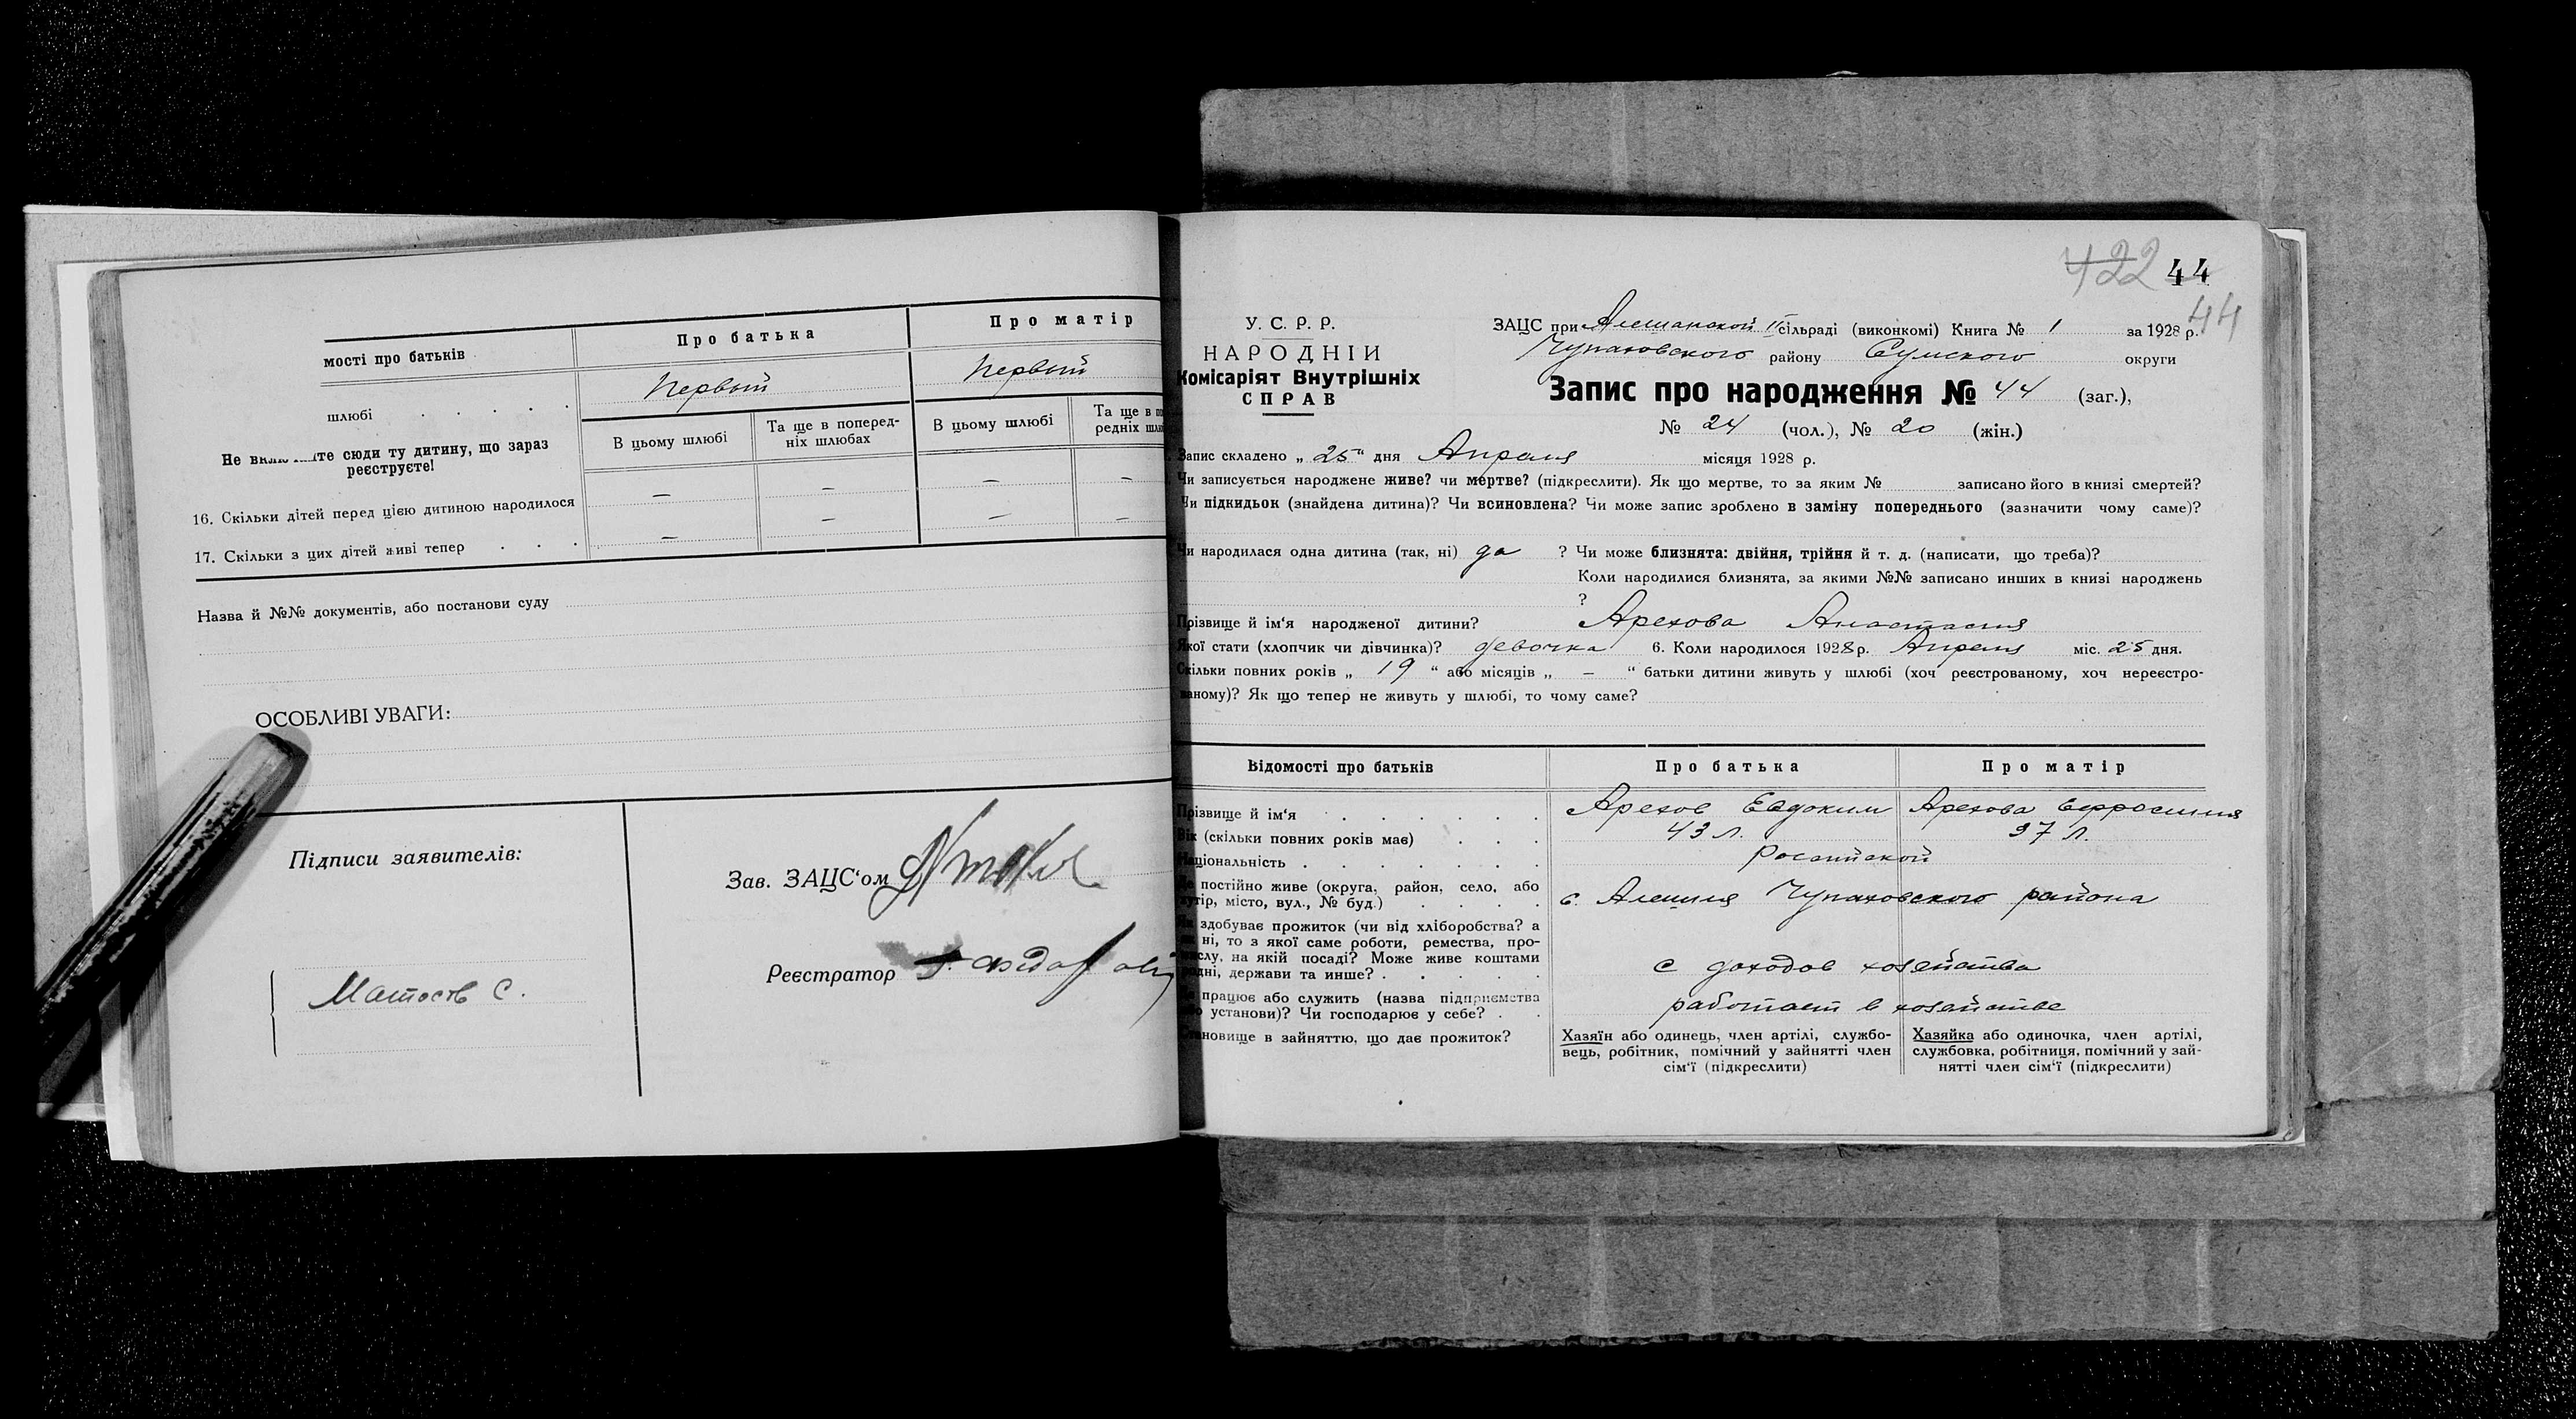 мості про батьків
Про батька
Про матір
шлюбі . . . . .
Первый
Первый
Не вклю те сюди ту дитину, що зараз
реєструєте!
В цьому шлюбі
Та ще в поперед-
ніх шлюбах
В цьому шлюбі
Та ще в по
редніх шлю
16. Скільки дітей перед цією дитиною народилося
— — — —
17. Скільки з цих дітей живі тепер . . .
— — — —
Назва й №№ документів, або постанови суду
ОСОБЛИВІ УВАГИ:
Підписи заявителів:
Зав. ЗАЦС‘ом
Реєстратор
422 44
44
У. С. Р. Р.
НАРОДНІЙ
Комісаріят Внутрішніх
СПРАВ
ЗАЦС при Алешанской II сільраді (виконкомі) Книга № 1 за 1928 р.
Чупаховского району Сумского округи
Запис про народження № 44 (заг.),
№ 24 (чол.), № 20 (жін.)
Запис складено „ 25 “ дня Апреля місяця 1928 р.
Чи записується народжене живе? чи мертве? (підкреслити). Як що мертве, то за яким № записано його в книзі смертей?
Чи підкидьок (знайдена дитина)? Чи всиновлена? Чи може запис зроблено в заміну попереднього (зазначити чому саме)?
Чи народилася одна дитина (так, ні) да ? Чи може близнята: двійня, трійня й т. д. (написати, що треба)?
Коли народилися близнята, за якими №№ записано инших в книзі народжень
?
Прізвище й ім‘я народженої дитини? Арехова Анастасия
Якої стати (хлопчик чи дівчинка)? девочка 6. Коли народилося 1928 р. Апреля міс. 25 дня.
Скільки повних років „ 19 “ або місяців „ — “ батьки дитини живуть у шлюбі (хоч реєстрованому, хоч нереєстро-
ваному)? Як що тепер не живуть у шлюбі, то чому саме?
Відомості про батьків
Про батька
Про матір
Прізвище й ім‘я . . . . . .
Арехов Евдоким
Арехова Ефросиния
Вік (скільки повних років має) . . .
43 л.
37 л.
Національність . . . . . . .
Российской
постійно живе (округа, район, село, або
хутір, місто, вул., № буд.) . . . .
с. Алешня Чупаховского района
здобуває прожиток (чи від хліборобства? а
ні, то з якої саме роботи, ремества, про-
мислу, на якій посаді? Може живе коштами
родні, держави та инше? . . . . .
с доходов хозяйства
працює або служить (назва підприємства
або установи)? Чи господарює у себе? . .
работает в хозяйстве
Становище в зайняттю, що дає прожиток?
Хазяїн або одинець, член артілі, службо-
вець, робітник, помічний у зайнятті член
сім‘ї (підкреслити)
Хазяйка або одиночка, член артілі,
службовка, робітниця, помічний у зай-
нятті член сім‘ї (підкреслити)